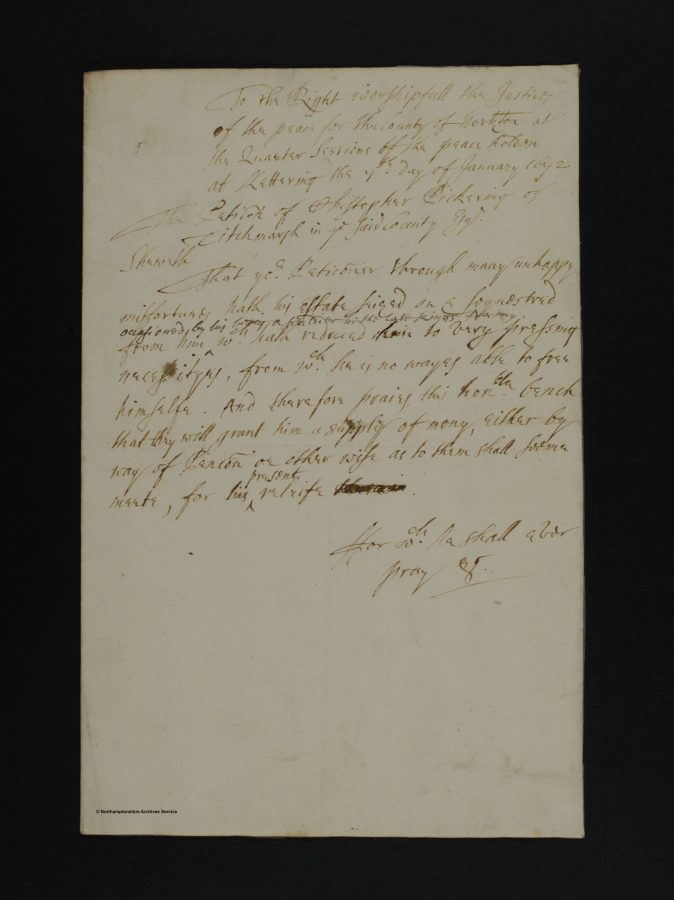 To the Right worshipfull the Justices
of the peace for the County of Northton at
the Quarter Sessions off the peace holden
at Kettering the day of January
The Peticon of Christopher Pickering of
Titchmarsh in ye said County Esqr.
Sheweth
That yor. Peticoner through many unhappy
missfortunes hath his estate seized on & sequestred
occationed by his being a souldier in the late kings Army
from him wch. hath reduced him to very pressing
necessityes, from wch. he is no wayes able to free
himselfe. And therefore praies this honble. bench
that they will grant him a supply of mony, either by
way of Pencon or other wise as to them shall seeme
present
meete, for his releife
Ffor wch. he shall ever
pray &c.
© Northamptonshire Archives Service